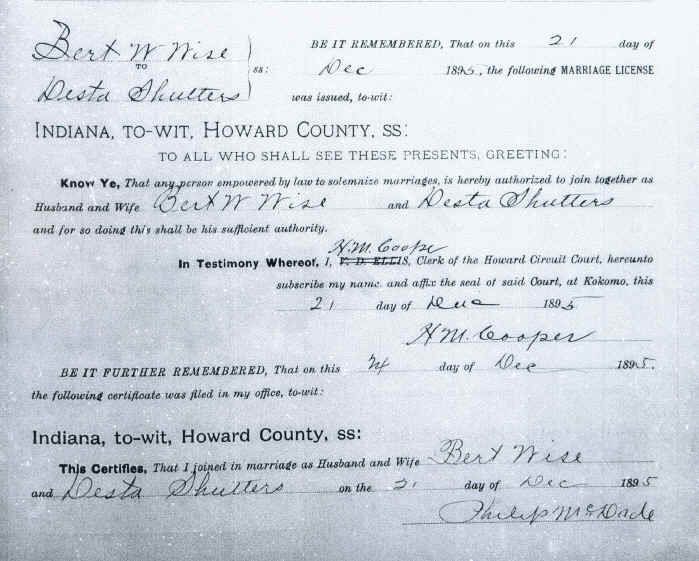 Bert W Wise
TO
Desta Shutters
ss:
BE IT REMEMBERED, That on this 21 day of
Dec 1895, the following MARRIAGE LICENSE
was issued, to-wit:
INDIANA, TO-WIT, HOWARD COUNTY, SS:
TO ALL WHO SHALL SEE THESE PRESENTS, GREETING:
Know Ye, That any person empowered by law to solemnize marriages, is hereby authorized to join together as
Husband and Wife Bert W Wise and Desta Shutters
and for so doing this shall be his sufficient authority.
H.M. Cooper
In Testimony Whereof, I, F. D. ELLIS, Clerk of the Howard Circuit Court, hereunto
subscribe my name and affix the seal of said Court, at Kokomo, this
21 day of Dec 1895
H M. Cooper
BE IT FURTHER REMEMBERED, That on this day of Dec 1895.
the following certificate was filed in my office, to-wit:
Indiana, to-wit, Howard County, ss:
This Certifies, That I joined in marriage as Husband and Wife Bert Wise
and Desta Shutters on the 21 day of Dec 1895
Philip McDade